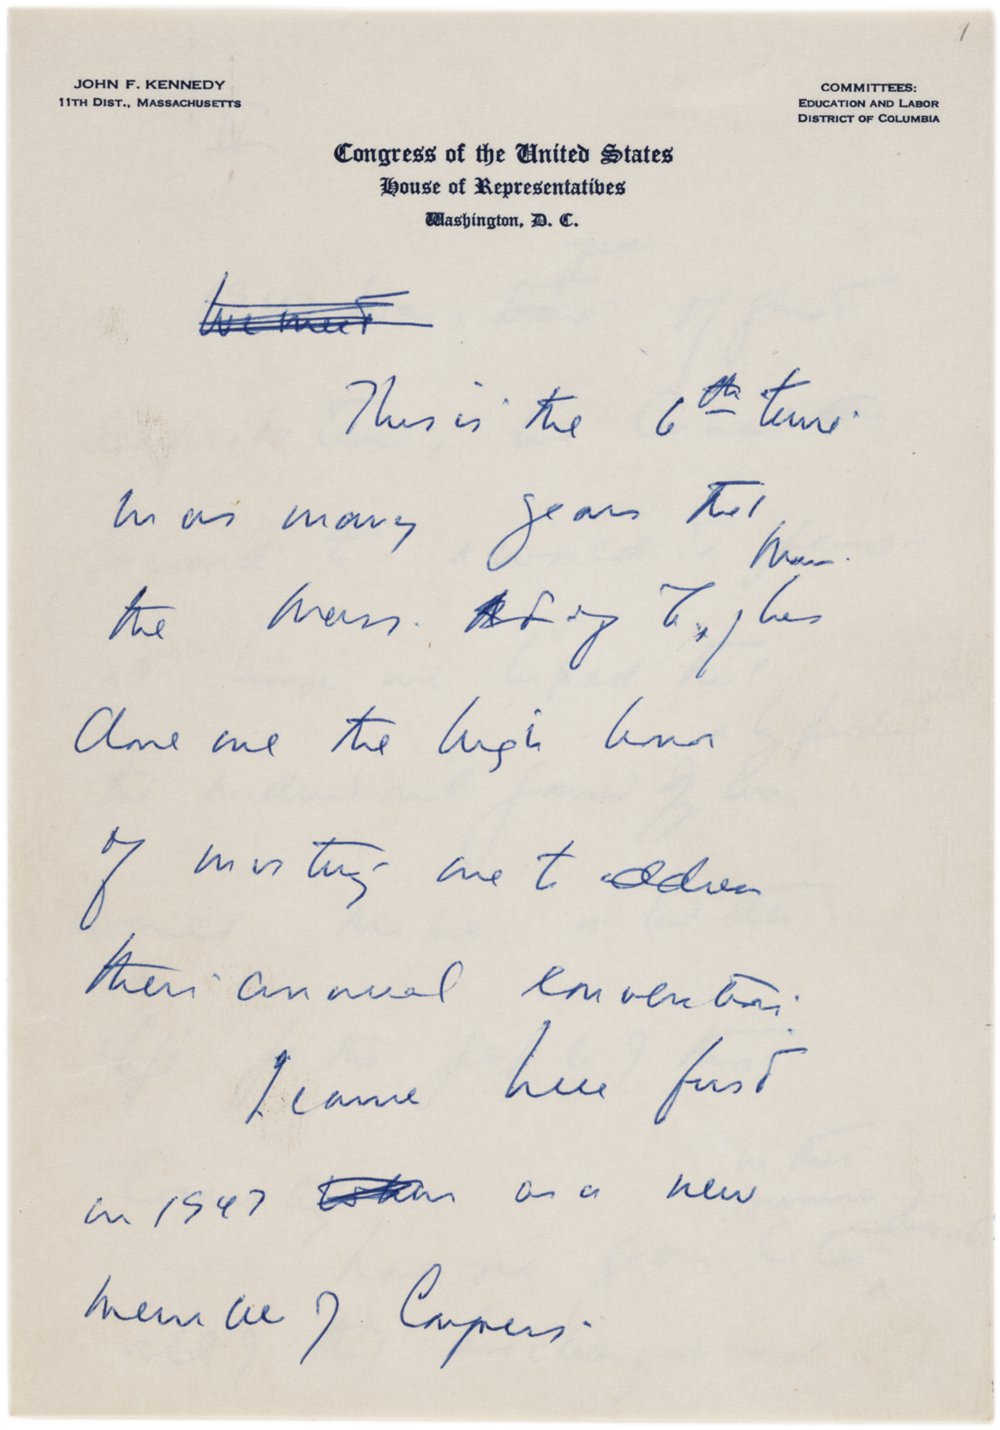 1
JOHN F. KENNEDY
11TH DIST., MASSACHUSETTS
COMMITTEES:
EDUCATION AND LABOR
DISTRICT OF COLUMBIA
Congress of the United States
House of Representatives
Washington, D. C.
We meet
This is the 6th time
in as many years that
the Mass. has
done me the high honor
of inviting me to address
their annual convention.
I came here first
in 1947 as a new
member of Congress.